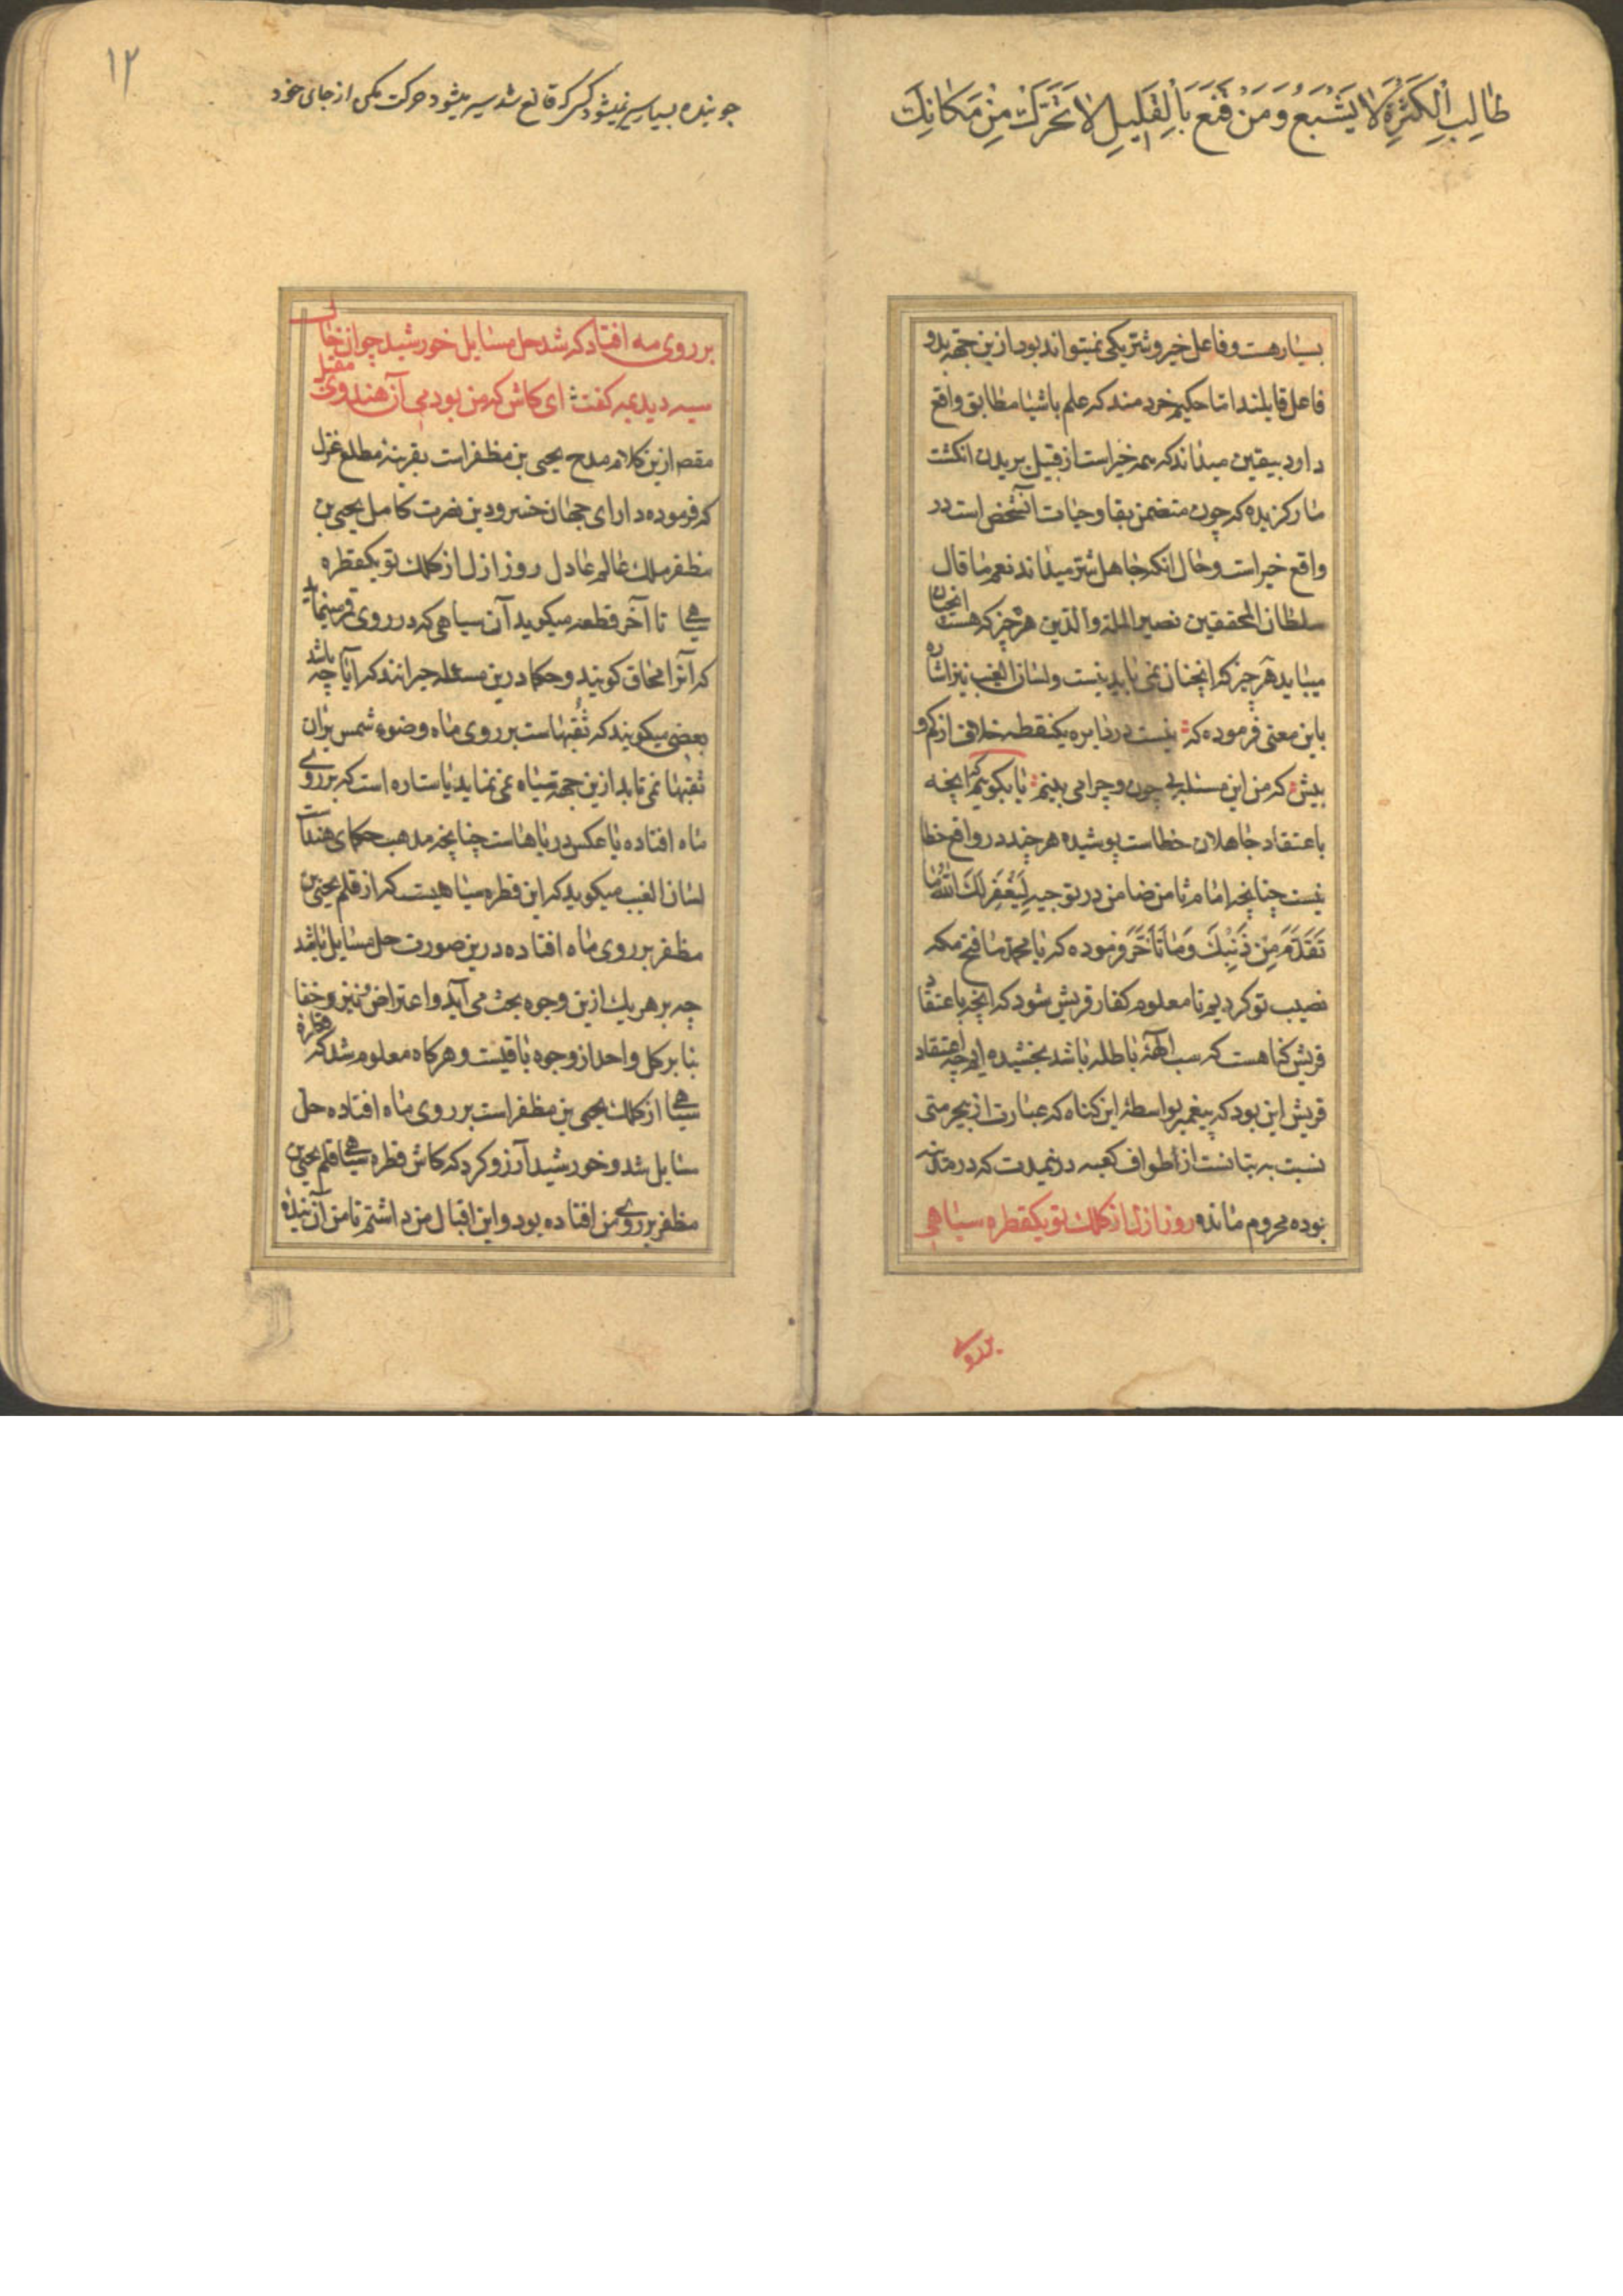 طالِبِ الکَثرَةِ لا یَشبَع وَمَن قَنَعَ بَالقَلیلِ لا تَحَرَّک مِن مَکانِکَ
بسیار هست و فاعل خیر و شر یکی نمیتواند بود ازین جهة بدو
فاعل قایلند اما حکیم خردمند که علم باشیا مطابق واقع
دارد بیقین میداند که همه خیر است از قبیل بریدن انکشت
مار کزیده که چون متضمن بقا و حیات آنشخص است در
واقع خیر است و حال انکه جاهل شر میداند نعم ما قال
سلطان المحققین نصیر الملة والدین هر چیز که هست انچنان
میباید هر چیز که انچنان نمی باید نیست و لسان الغیب نیز اشاره
باین معنی فرموده که نیست در دایره یکنقطه خلاف از کم و
بیش که من این مسئله بی چون و چرا می بینم یا بکوییم که انچه
باعتقاد جاهلان خطاست پوشیده هر چند در واقع خطا
نیست چنانچه امام ثامن ضامن در توجیه لِیَغفِرَ لَکَ اللهُ ما
تَقَدَّمَ مِن ذَنبِکَ وَما تَأَخَّرَ فرموده که یا محمد ما فتح مکه
نصیب تو کردیم تا معلوم کفار قریش شود که انچه باعتقاد
قریش کناهست که سب الهۀ باطله باشد بخشیده ایم چه اعتقاد
قریش این بود که پیغمبر بواسطۀ این کناه که عبارت از بیحرمتی
نسبت به بتانست از طواف کعبه درینمدت که در مدینه
بوده محروم مانده روز ازل از کلک تو یکقطره سیاهی
بر روی
۱۲
جوینده بسیار سیر نمیشود کسی که قانع شد سیر میشود حرکت مکن از جای خود
بر روی مه افتاد که شد حل مسایل خورشید چو آن خال
سیه دید بمه کفت ای کاش که من بودمی آن هندوی مقبل
مقص ازین کلام مدح یحیی بن مظفر است بقرینۀ مطلع غزل
که فرموده دارای جهان خسرو دین نصرت کامل یحیی بن
مظفر ملک عالم عادل روز ازل از کلک تو یکقطره
سیاهی تا آخر قطعه میکوید آن سیاهی که در روی قمر مینماید
که آنرا محاق کویند و حکما درین مسئله حیرانند که آیا چه باشد
بعضی میکویند که ثُقبهاست بر روی ماه و ضوء شمس بران
ثقبها نمی تابد ازین جهة سیاه می نماید یا ستاره است که بر روی
ماه افتاده یا عکس دریاهاست چنانچه مذهب حکمای هند است
لسان الغیب میکوید که این قطره سیاهیست که از قلم یحیی بن
مظفر بر روی ماه افتاده درین صورت حل مسایل باشد
چه بر هر یک ازین وجوه بحث می آید و اعتراض و خفا
بنا بر کل واحد از وجوه باقیست و هرکاه معلوم شد که قطره
سیاهی از کلک یحیی بن مظفر است بر روی ماه افتاده حل
مسایل شد و خورشید آرزو کرد که کاش قطره سیاهی قلم یحیی بن
مظفر بر روی من افتاده بود و این اقبال من داشتم تا من آن بنده